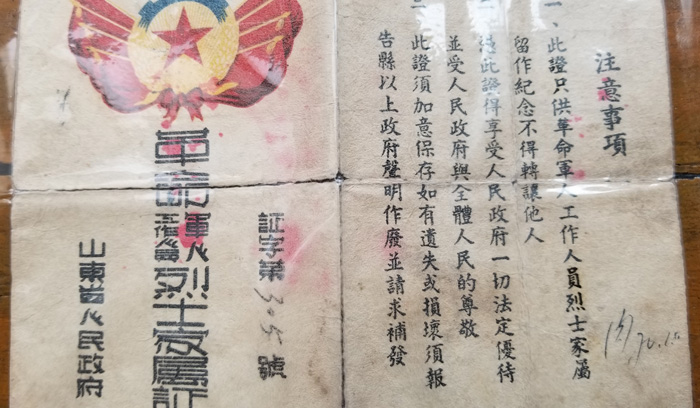 注意事項
一、此證只供革命軍人工作人員烈士家屬
留作紀念不得轉讓他人
憑此證得享受人民政府一切法定優待
並受人民政府與全體人民的尊敬
此證須加意保存如有遺失或損壞須報
告縣以上政府聲明作廢並請求補發
証字第305號
革命軍人工作人員烈士家屬証
山東省人民政府